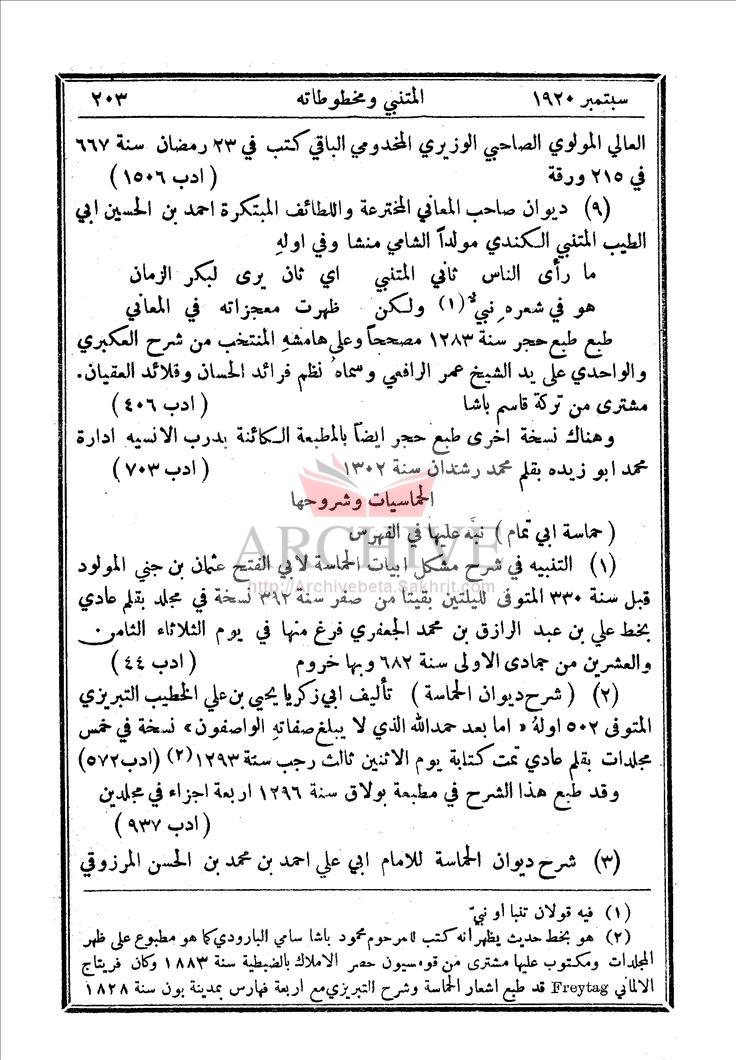 سبتمبر ١٩٢٠ المتنبي ومخطوطاته ٢٠٣
العالي المولوي الصاحبي الوزيري المخدومي الباقي كتب في ٢٣ رمضان سنة ٦٦٧
في ٢١٥ ورقة (ادب ١٥٠٦)
(٩) ديوان صاحب المعاني المخترعة واللطائف المبتكرة احمد بن الحسين ابي
الطيب المتنبي الكندي مولداً الشامي منشا وفي اولهِ
ما رأى الناس ثاني المتنبي اي ثان يرى لبكر الزمان
هو في شعرهِ نبيٌّ (١) ولكن ظهرت معجزاته في المعاني
طبع طبع حجر سنة ١٢٨٣ مصححاً وعلى هامشهِ المنتخب من شرح العكبري
والواحدي على يد الشيخ عمر الرافعي وسماهُ نظم فرائد الحسان وقلائد العقيان.
مشترى من تركة قاسم باشا (ادب ٤٠٦)
وهناك نسخة اخرى طبع حجر ايضاً بالمطبعة الكائنة بدرب الانسيه ادارة
محمد ابو زيده بقلم محمد رشدان سنة ١٣٠٢ (ادب ٧٠٣)
الحماسيات وشروحها
(حماسة ابي تمام) نبَّه عليها في الفهرس
(١) التنبيه في شرح مشكل ابيات الحماسة لابي الفتح عثمان بن جني المولود
قبل سنة ٣٣٠ المتوفى لليلتين بقيتا من صفر سنة ٣٩٢ نسخة في مجلد بقلم عادي
بخط علي بن عبد الرازق بن محمد الجعفري فرغ منها في يوم الثلاثاء الثامن
والعشرين من جمادى الاولى سنة ٦٨٢ وبها خروم (ادب ٤٤)
(٢) (شرح ديوان الحماسة) تأليف ابي زكريا يحيى بن علي الخطيب التبريزي
المتوفى ٥٠٢ اولهُ «اما بعد حمدالله الذي لا يبلغ صفاتهِ الواصفون» نسخة في خمس
مجلدات بقلم عادي تمت كتابة يوم الاثنين ثالث رجب سنة ١٢٩٣ (٢) (ادب ٥٧٢)
وقد طبع هذا الشرح في مطبعة بولاق سنة ١٢٩٦ اربعة اجزاء في مجلدين
(ادب ٩٣٧)
(٣) شرح ديوان الحماسة للامام ابي علي احمد بن محمد بن الحسن المرزوقي
(١) فيه قولان تنبا او نبيّ
(٢) هو بخط حديث يظهر انه كتب للمرحوم محمود باشا سامي البارودي كما هو مطبوع على ظهر
المجلدات ومكتوب عليها مشترى من قومسيون حصر الاملاك بالضبطية سنة ١٨٨٣ وكان فريتاج
الالماني Freytag قد طبع اشعار الحماسة وشرح التبريزي مع اربعة فهارس بمدينة بون سنة ١٨٢٨
ARCHIVE
http://Archivebeta.Sakhrit.com